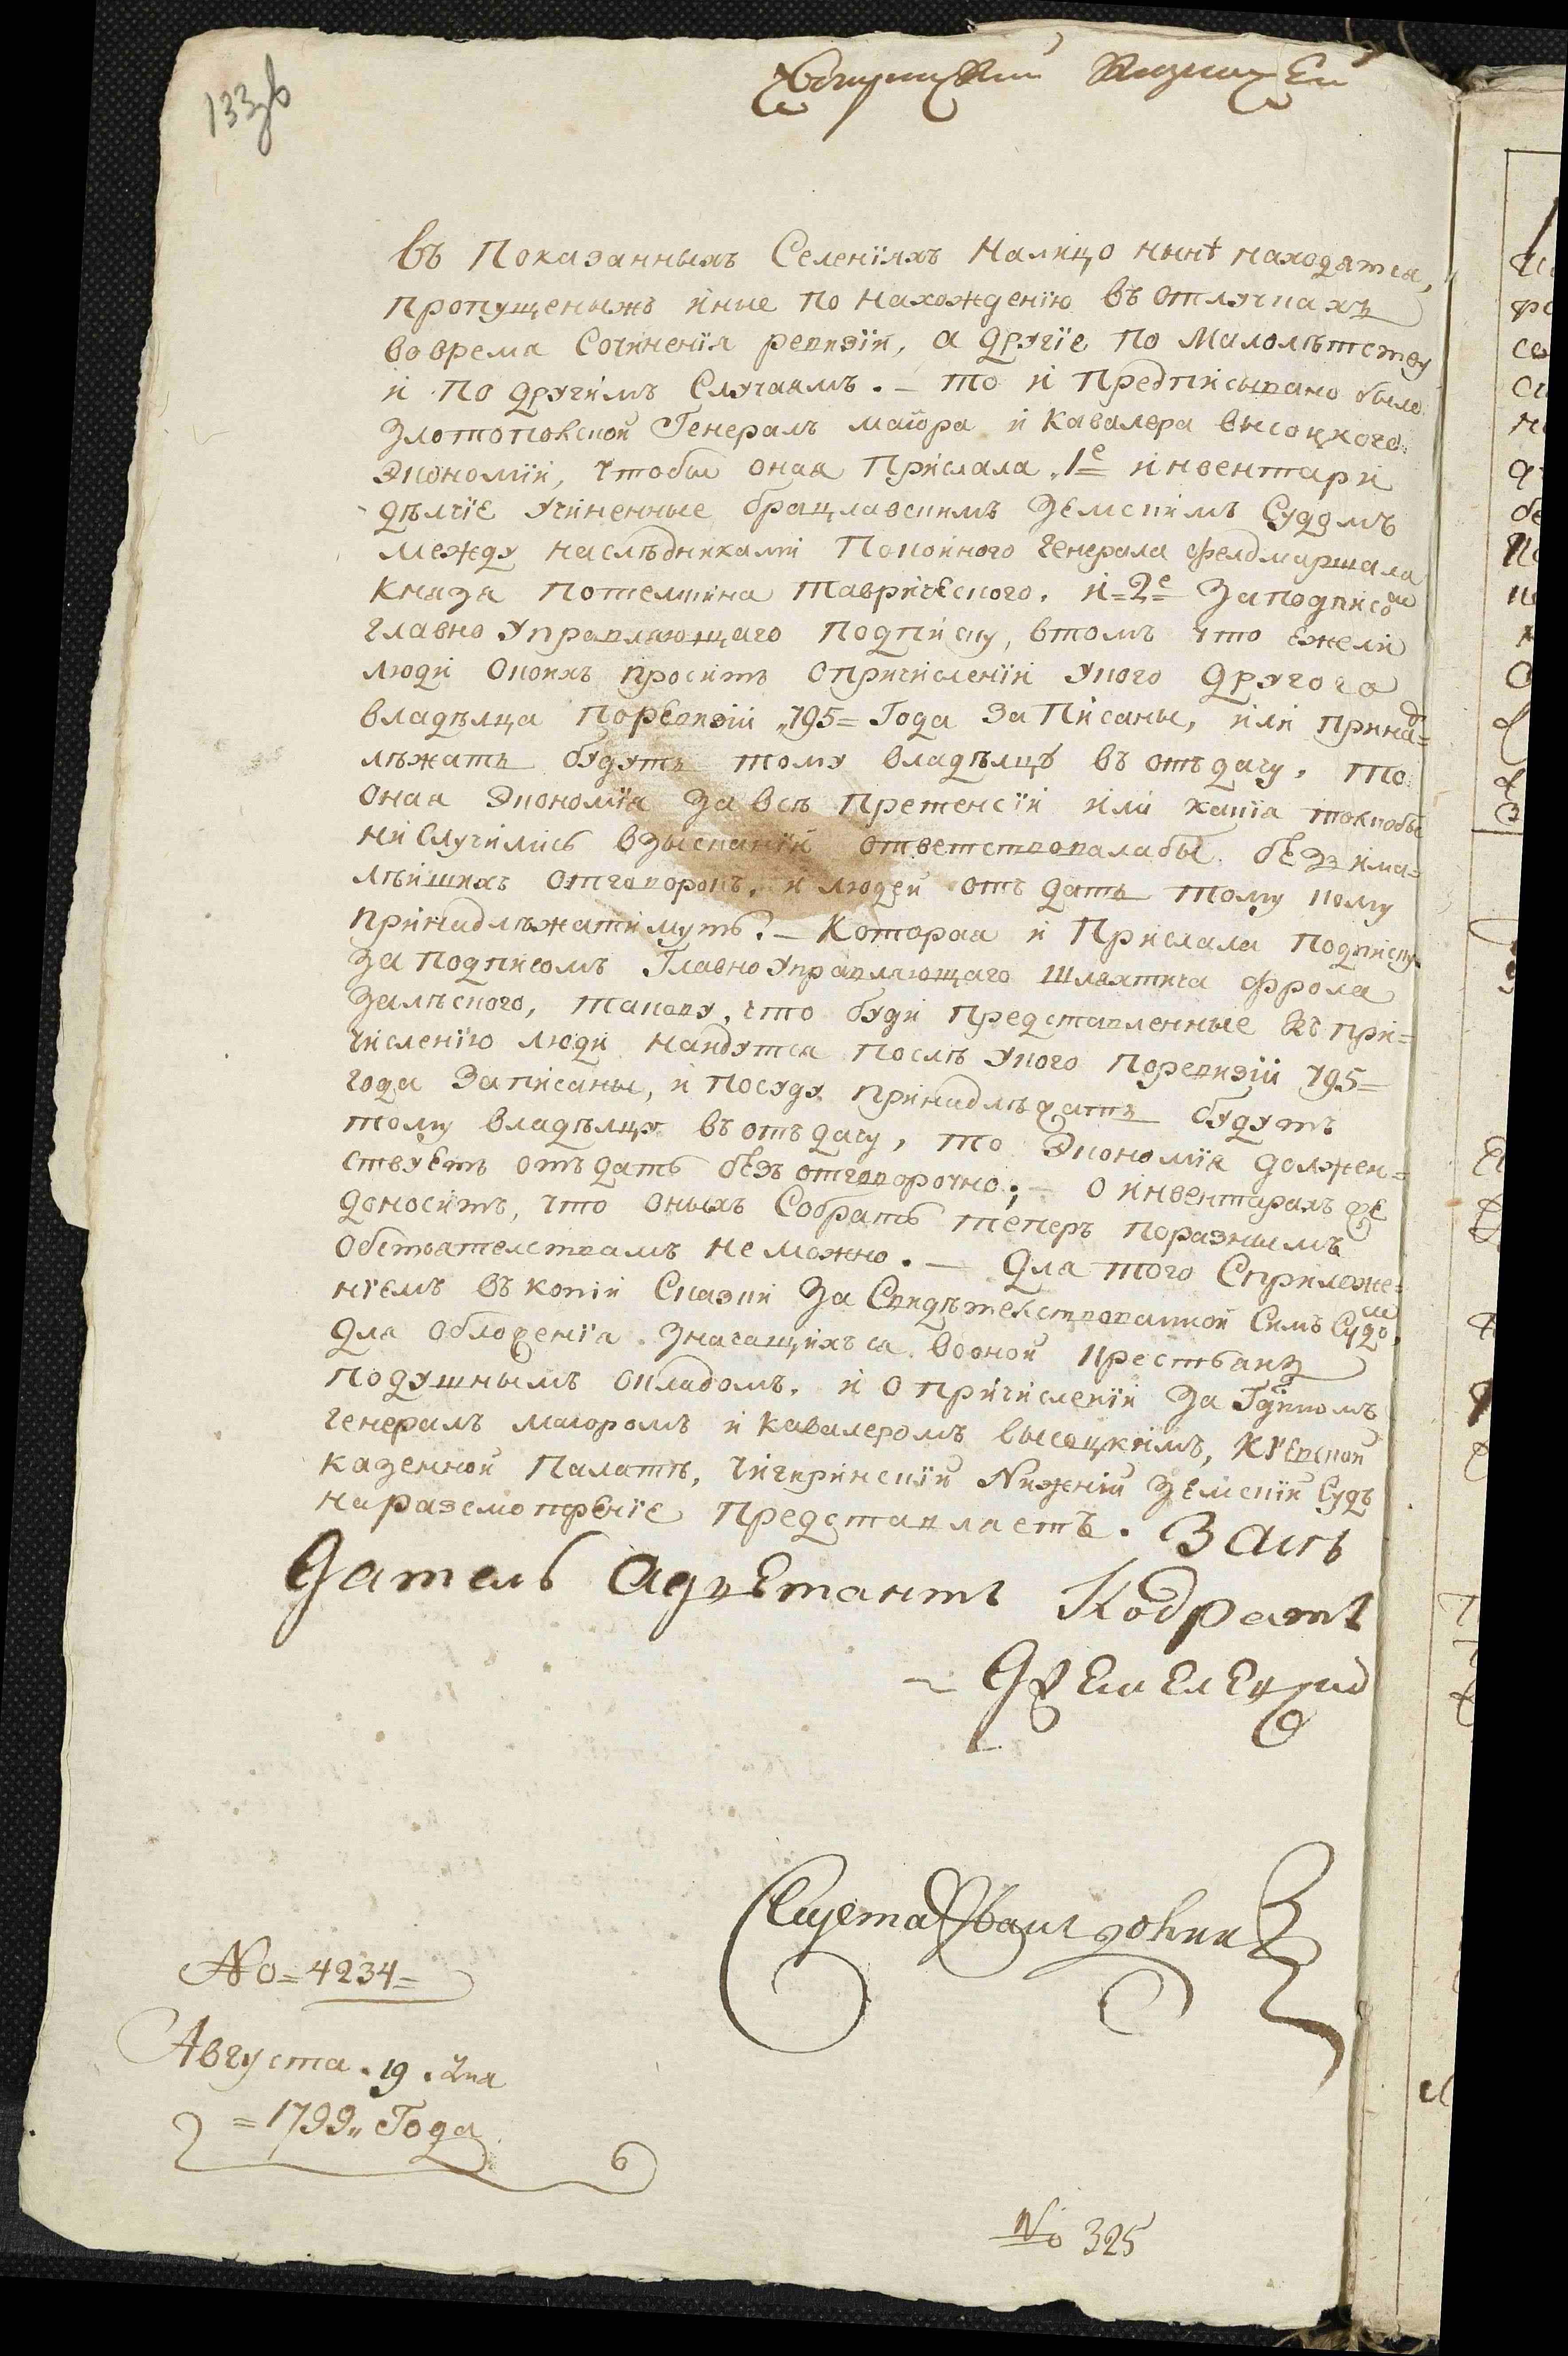 133 зв
въ Показанныхъ Селенїяхъ Налицо нынѣ находятся,
пропущеныжъ иные по нахожденїю въ отлучкахъ
во время Сочиненїя ревизїи, а другїе по Малолѣтству
и по другимъ Случаямъ. – то и Предписывано было
Златопольской Генералъ маіора и Кавалера высоцкого
Экономїи, чтобы оная Прислала „1е инвентари
дѣлчїе учиненные брацлавскимъ Земскимъ Судомъ
между наслѣдниками Покойного генерала фелдмаршала
Князя Потемкина Таврического. и=2е За подписомъ
главно Управляющаго Подписку, втомъ что ежели
люди Окоихъ проситъ Опричисленїи укого другого
владѣлца поревизїи „795= Года Записаны, или принад=
лѣжать будутъ тому владѣлцѣ въ отъдачу, то
Оная Экономїя За всѣ Претенсїи или какїя токмобы
ни Случились взысканїи ответствовалабы безъ има=
лѣишихъ отговорокъ, и людей отъ дать тому кому
принадлѣжатимутъ. – Которая и Прислала Подписку
За Подписомъ Главно Управляющаго Шляхтича фрола
Залѣского, такову, что буди представленные къ при=
численїю люди найдутся послѣ укого поревизїи 795=
года Записаны, и посуду принадлѣжать будутъ
тому владѣлцу въ отъдачу, то Экономїя должен=
ствуетъ отъдать безъ отговорочно; – о инвентаряхъ же
доноситъ, что оныхъ Собрать теперъ поразнымъ
Обстоятелствамъ неможно. – Для того Сприложе=
нїемъ въ копїи Сказки За Свидѣтелствованной Симъ Судомъ,
для обложенїя значащихъся воной крестьянъ
подушнымъ окладомъ. и о причисленїи За Гдномъ
генералъ маіоромъ и кавалеромъ высоцкимъ, Кїевской
казенной Палатѣ, Чигиринскїй Нижнїй Земскїй Судъ
наразсмотренїе представляетъ. Засѣ
датель
Кодратъ
No=4234=
Августа. 19. дня
=1799„ Года
No 325